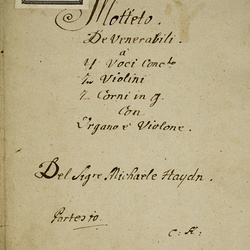 Motteto.
De Venerabili.
a
4 Voci Conc:to
2 Violini
2 Corni in g.
Con
Organo e Violone.
Del Sigre Michaele Haydn.
C: H: